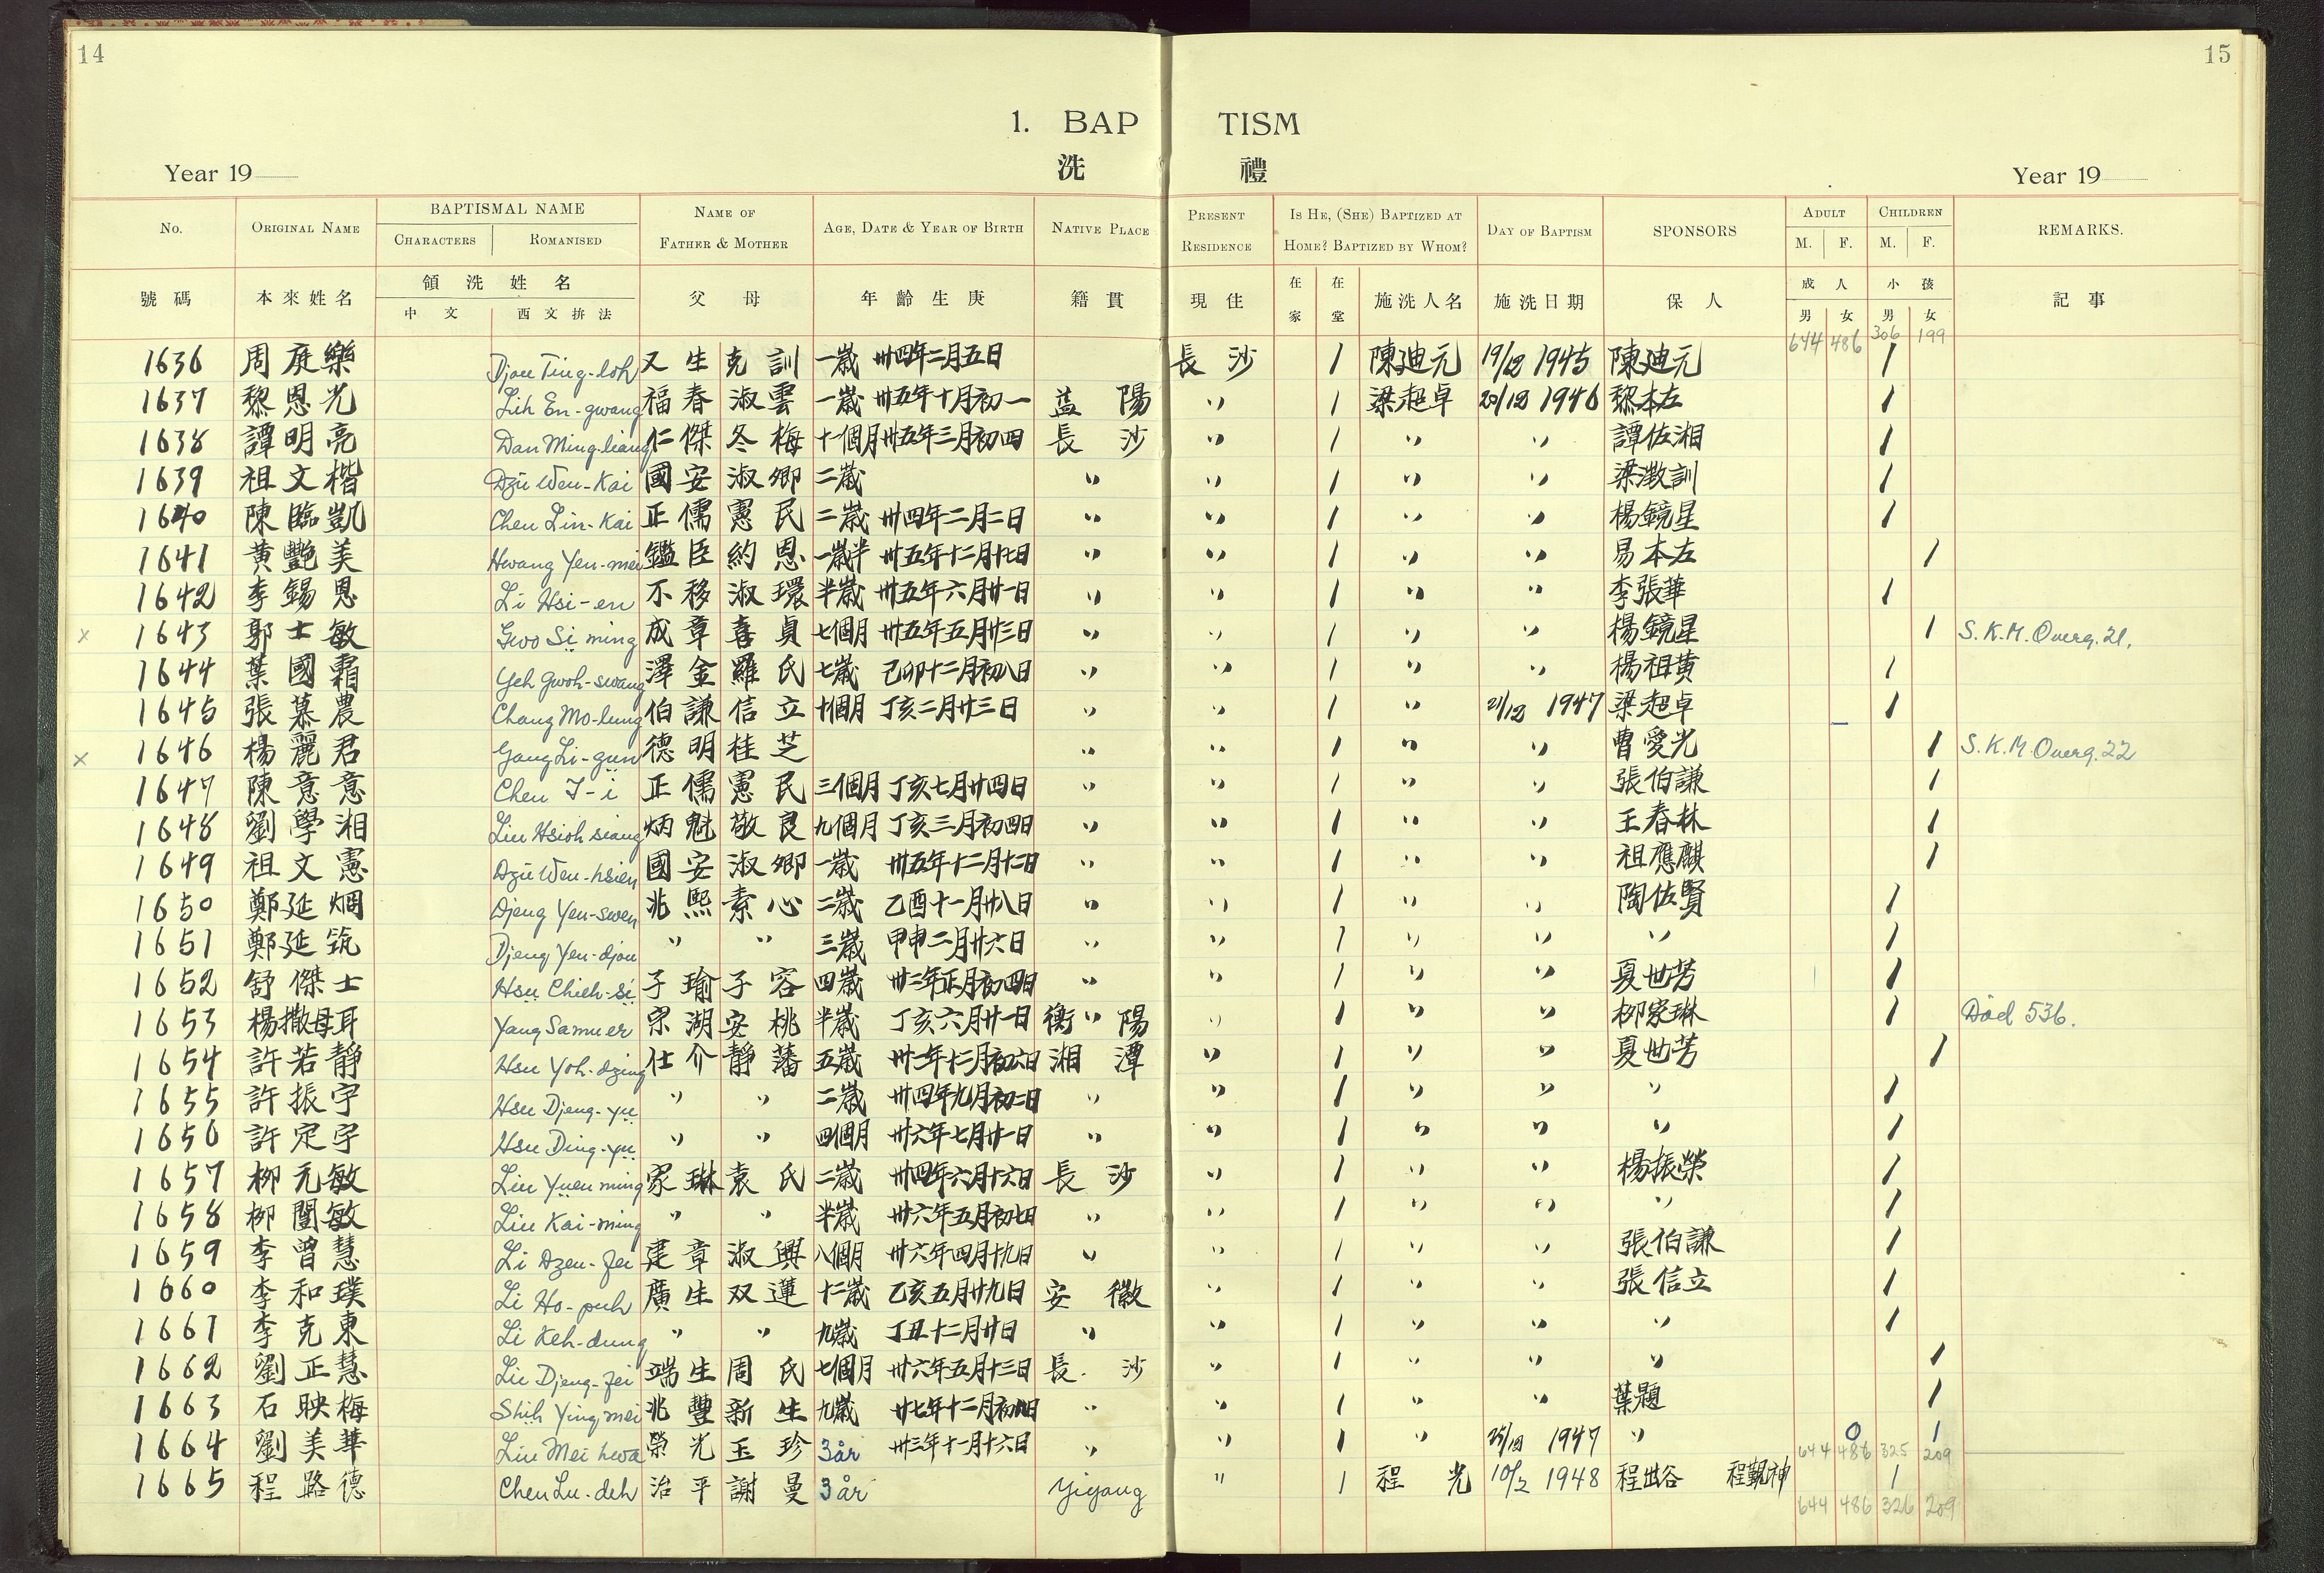 14
15
1. BAP TISM
洗 禮
Year 19
Year 19
No. ORIGINAL NAME BAPTISMAL NAME CHARACTERS ROMANISED NAME OF FATHER & MOTHER AGE, DATE & YEAR OF BIRTH NATIVE PLACE PRESENT RESIDENCE IS HE, (SHE) BAPTIZED AT HOME? BAPTIZED BY WHOM? DAY OF BAPTISM SPONSORS ADULT M. F. CHILDREN M. F. REMARKS.
號碼 本來姓名 領洗姓名 中文 西文拚法 父母 年齡生庚 籍貫 現住 在家 在堂 施洗人名 施洗日期 保人 成人 男 女 小孩 男 女 記事
644 486 306 199
1636 周庭樂 Djou Ting-loh 又生 克訓 一歲 卅四年二月五日 長沙 1 陳迪元 19/12 1945 陳迪元 1
1637 黎恩光 Lih En-gwang 福春 淑雲 一歲 卅五年十月初一 益陽 〃 1 梁超卓 20/12 1946 黎本左 1
1638 譚明亮 Dan Ming-liang 仁傑 冬梅 十個月 卅五年三月初四 長沙 〃 1 〃 〃 譚佐湘 1
1639 祖文楷 Dzü Wen-Kai 國安 淑卿 二歲 〃 〃 1 〃 〃 梁澂訓 1
1640 陳臨凱 Chen Lin-Kai 正儒 憲民 二歲 卅四年二月二日 〃 〃 1 〃 〃 楊鏡星 1
1641 黃艷美 Hwang Yen-mei 鑑臣 約恩 一歲半 卅五年十二月廿七日 〃 〃 1 〃 〃 易本左 1
1642 李錫恩 Li Hsi-en 不移 淑環 半歲 卅五年六月廿一日 〃 〃 1 〃 〃 李張華 1
x 1643 郭士敏 Gwo Si ming 成章 喜貞 七個月 卅五年五月廿三日 〃 〃 1 〃 〃 楊鏡星 1 S.K.M. Overg. 21.
1644 葉國霜 Yeh Gwoh-swang 澤金 羅氏 七歲 己卯十二月初八日 〃 〃 1 〃 〃 楊祖黄 1
1645 張慕農 Chang Mo-lung 伯謙 信立 十個月 丁亥二月廿三日 〃 〃 1 〃 21/12 1947 梁超卓 1
x 1646 楊麗君 Yang Li-gün 德明 桂芝 〃 〃 1 〃 〃 曹愛光 1 S.K.M. Overg. 22
1647 陳意意 Chen I-i 正儒 憲民 三個月 丁亥七月廿四日 〃 〃 1 〃 〃 張伯謙 1
1648 劉學湘 Liu Hsioh siang 炳魁 敬良 九個月 丁亥三月初四日 〃 〃 1 〃 〃 王春林 1
1649 祖文憲 Dzü Wen-hsien 國安 淑卿 一歲 卅五年十二月十二日 〃 〃 1 〃 〃 祖應麒 1
1650 鄭延 Djeng Yen-swen 兆熙 素心 二歲 乙酉十一月廿八日 〃 〃 1 〃 〃 陶佐賢 1
1651 鄭延筑 Djeng Yen-djou 〃 〃 三歲 甲申二月廿六日 〃 〃 1 〃 〃 〃 1
1652 舒傑士 Hsu Chieh-si 子瑜 子容 四歲 卅三年正月初四日 〃 〃 1 〃 〃 夏世芳 1
1653 楊撒母耳 Yang Samuer 宗湖 安桃 半歲 丁亥六月廿一日 衡陽 〃 1 〃 〃 柳家琳 1 Död 536.
1654 許若靜 Hsu Yoh-dzing 仕介 靜藩 五歲 卅二年十二月初六日 湘潭 〃 1 〃 〃 夏世芳 1
1655 許振宇 Hsu Djeng-yu 〃 〃 二歲 卅四年九月初二日 〃 〃 1 〃 〃 〃 1
1656 許定宇 Hsu Ding-yu 〃 〃 四個月 卅六年七月廿一日 〃 〃 1 〃 〃 〃 1
1657 柳元敏 Liu Yuen ming 家琳 袁氏 二歲 卅四年六月十六日 長沙 〃 1 〃 〃 楊振榮 1
1658 柳闓敏 Liu Kai-ming 〃 〃 半歲 卅六年五月初七日 〃 〃 1 〃 〃 〃 1
1659 李曾慧 Li Dzen-fei 建章 淑興 八個月 卅六年四月十九日 〃 〃 1 〃 〃 張伯謙 1
1660 李和璞 Li Ho-puh 廣生 双蓮 十二歲 乙亥五月廿九日 安徽 〃 1 〃 〃 張信立 1
1661 李克東 Li Keh-dung 〃 〃 九歲 丁丑十二月廿日 〃 〃 1 〃 〃 〃 1
1662 劉正慧 Liu Djeng-fei 端生 周氏 七個月 卅六年五月十三日 長沙 〃 1 〃 〃 〃 1
1663 石映梅 Shih Ying mei 兆豐 新生 九歲 廿七年十二月初四日 〃 〃 1 〃 〃 葉題 1
1664 劉美華 Liu Mei hwa 榮光 玉珍 3 år 卅三年十一月十六日 〃 〃 1 〃 25/12 1947 〃 0 1
644 486 325 209
1665 程路德 Chen Lu-deh 治平 謝曼 3 år Yiyang 〃 1 程光 10/2 1948 程谷 程覲神 1
644 486 326 209